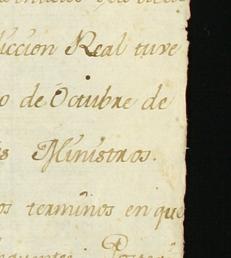 diccion Real tuve
o de Octubre de
s Ministros.
os terminos en que